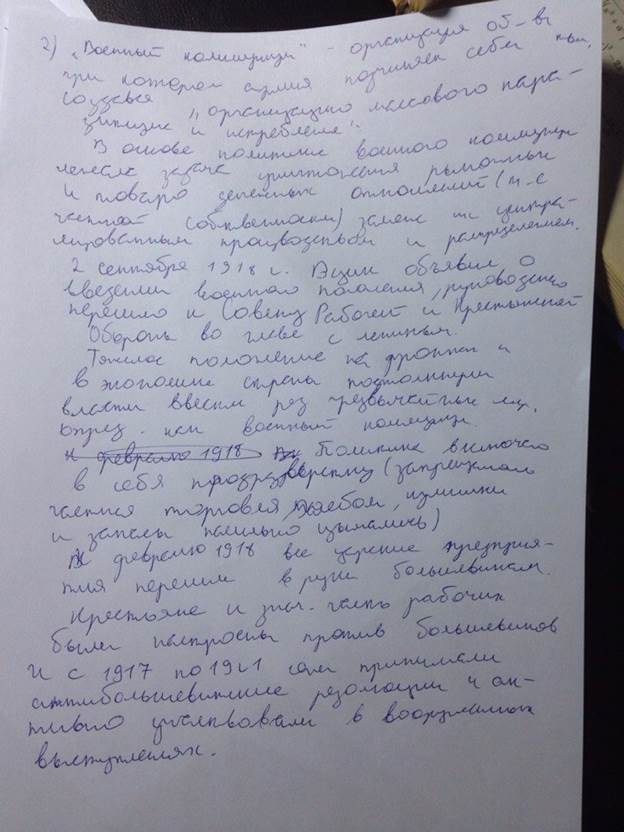 2) „Военный коммунизм" - организация об-ва
при котором армия подчиняет себе
создавая „организацию массового пара-
зитизма и истребления".
В основе политики военного коммунизма
лежала задача уничтожения рыночных
и товарно денежных отношений (т-е
частной собственности) заменяя их центра-
лизованным производством и распределением.
2 сентября 1918 г. Вцик объявил о
введении военного положения, руководство
перешло к Совету Рабочей и Крестьянской
Обороны во главе с лениным.
Тяжелое положение на фронтах и
в экономике страны подтолкнули
власти ввести ряд чрезвычайных мер,
опред. как военный коммунизм
к февралю 1918 Политика включала
в себя продразверстку (запрещалась
частная торговля хлебом, излишки
и запасы насильно изымались)
К февралю 1918 все царские предприя-
тия перешли в руки большевикам.
Крестьяне и знач. часть рабочих
были настроены против большевиков
И с 1917 по 1921 они принимали
антибольшевитские резолюции и ак-
тивно участвовали в вооруженных
выступлениях.